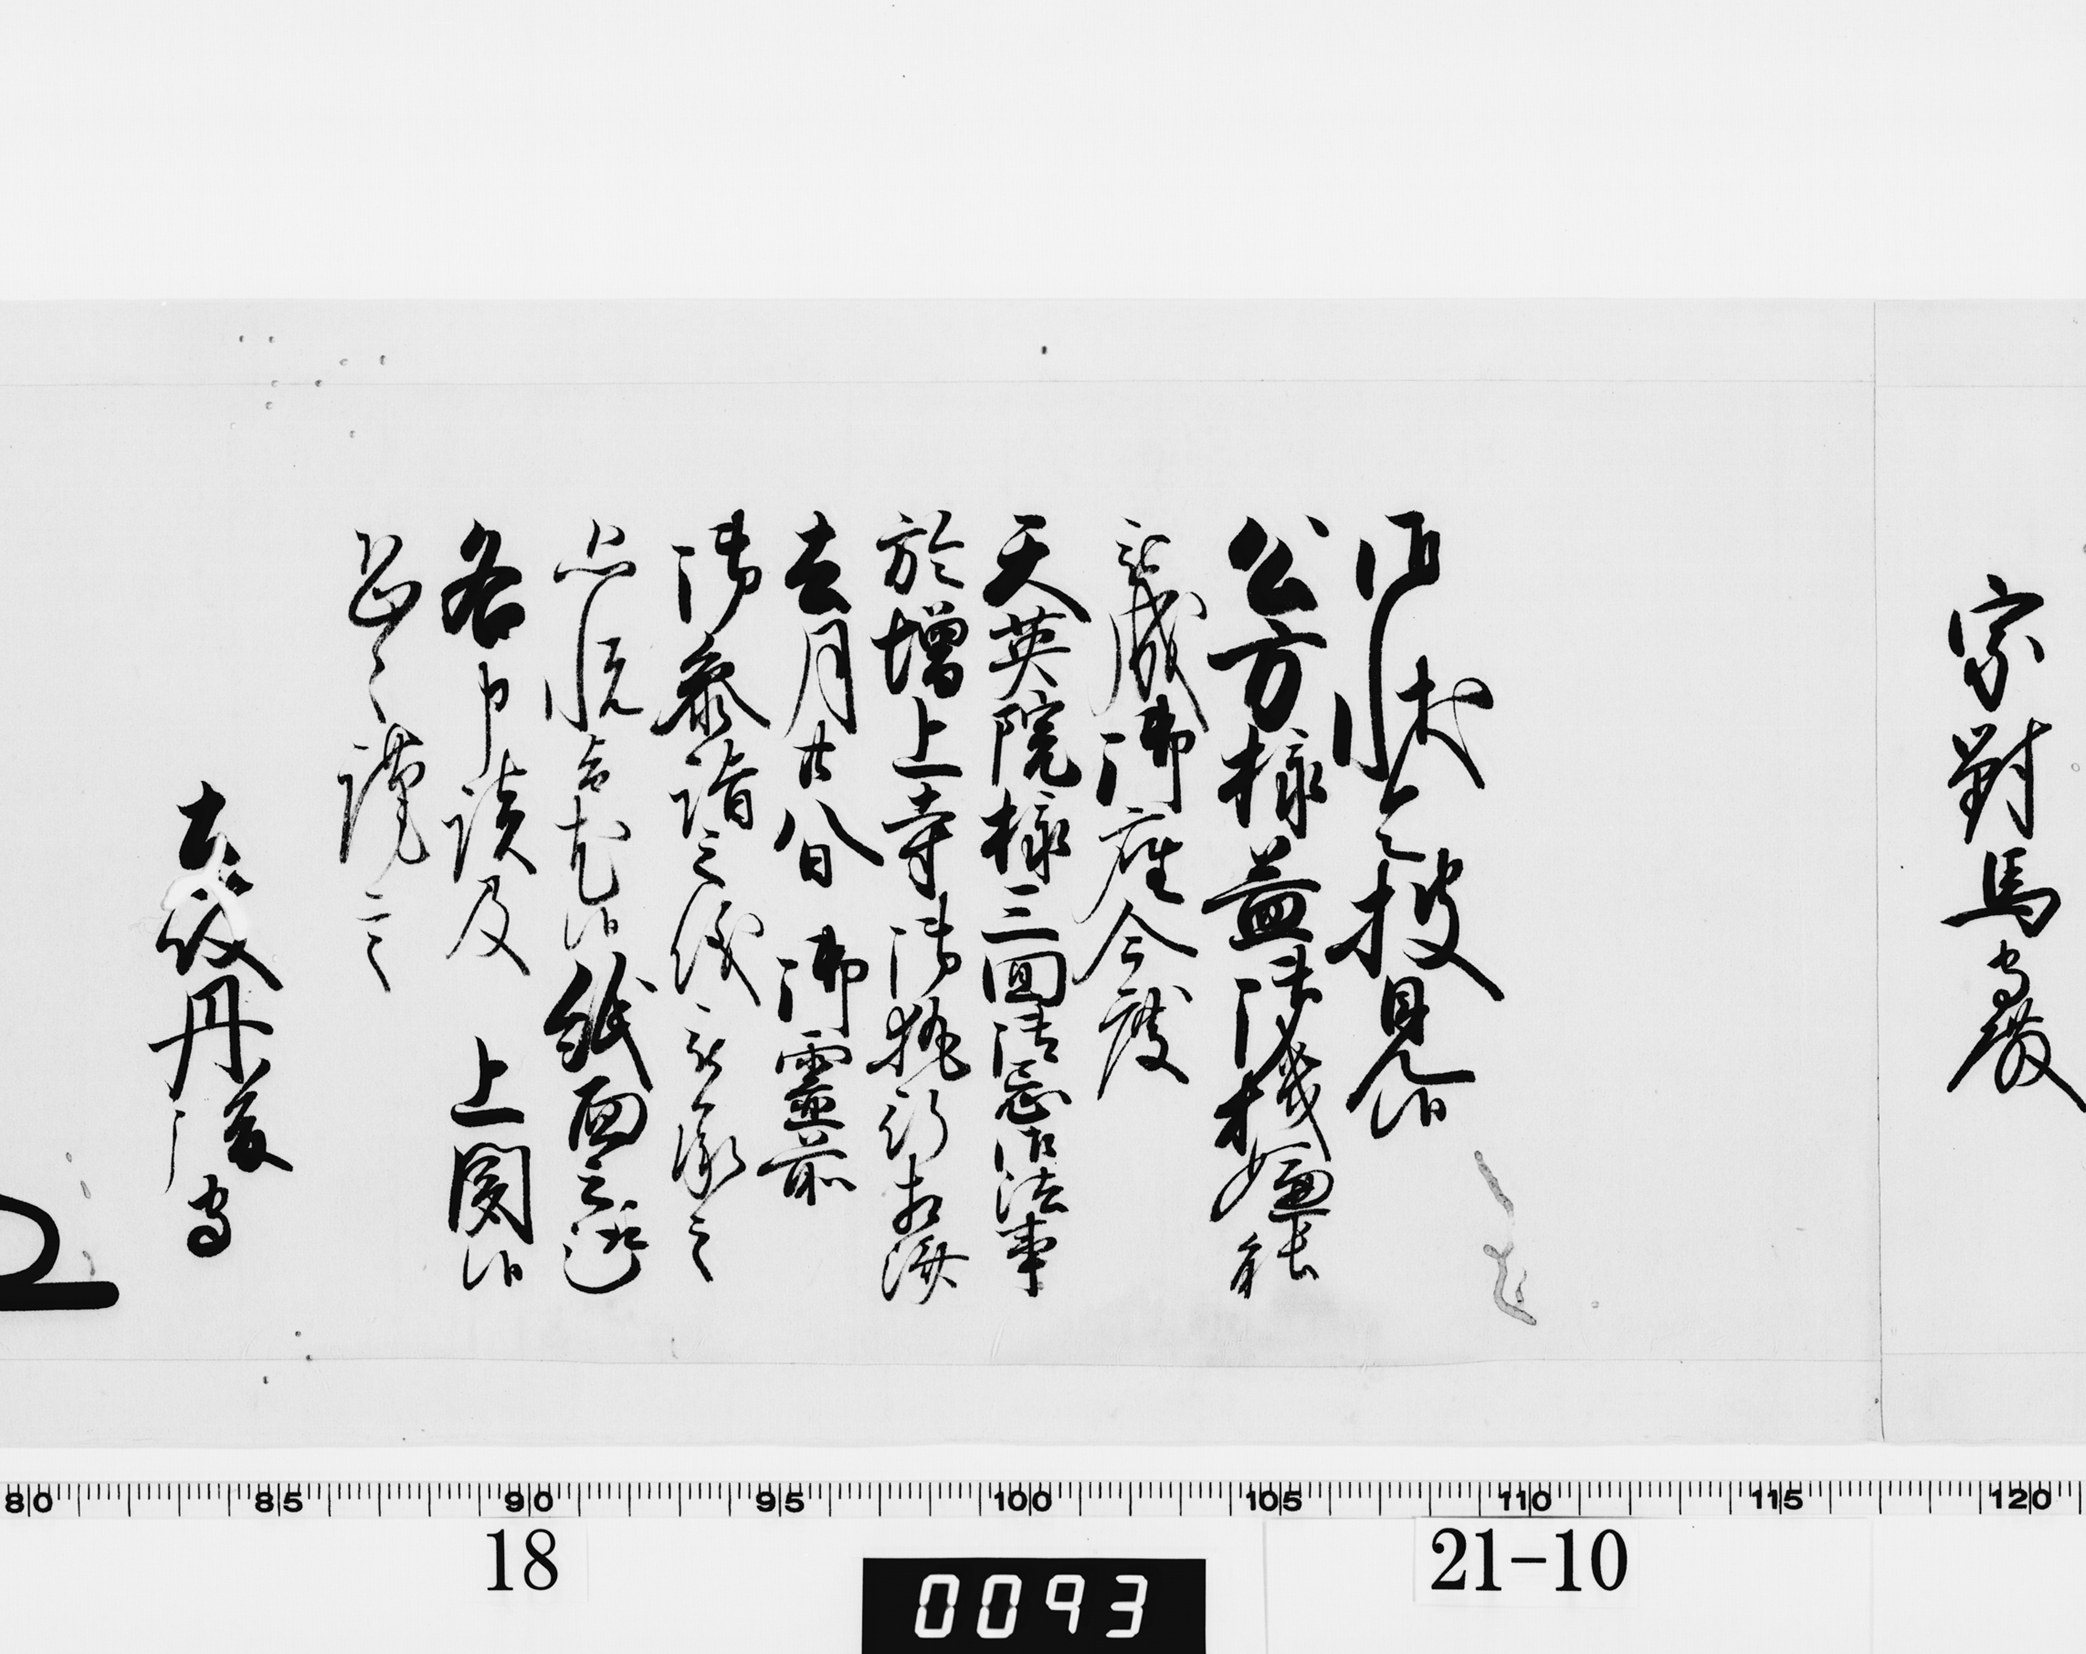 宗對馬守殿
御状令披見候
公方様益御機嫌能
被成御座今度
天英院様三回御忌御法事
於増上寺御執行相済
去月廿八日御霊前
御参詣之儀被承之
恐悦旨尤候紙面之趣
各申談及上聞候
恐々謹言
丹後守
80 85 90 95 100 105 110 115 120
18
0093
21-10